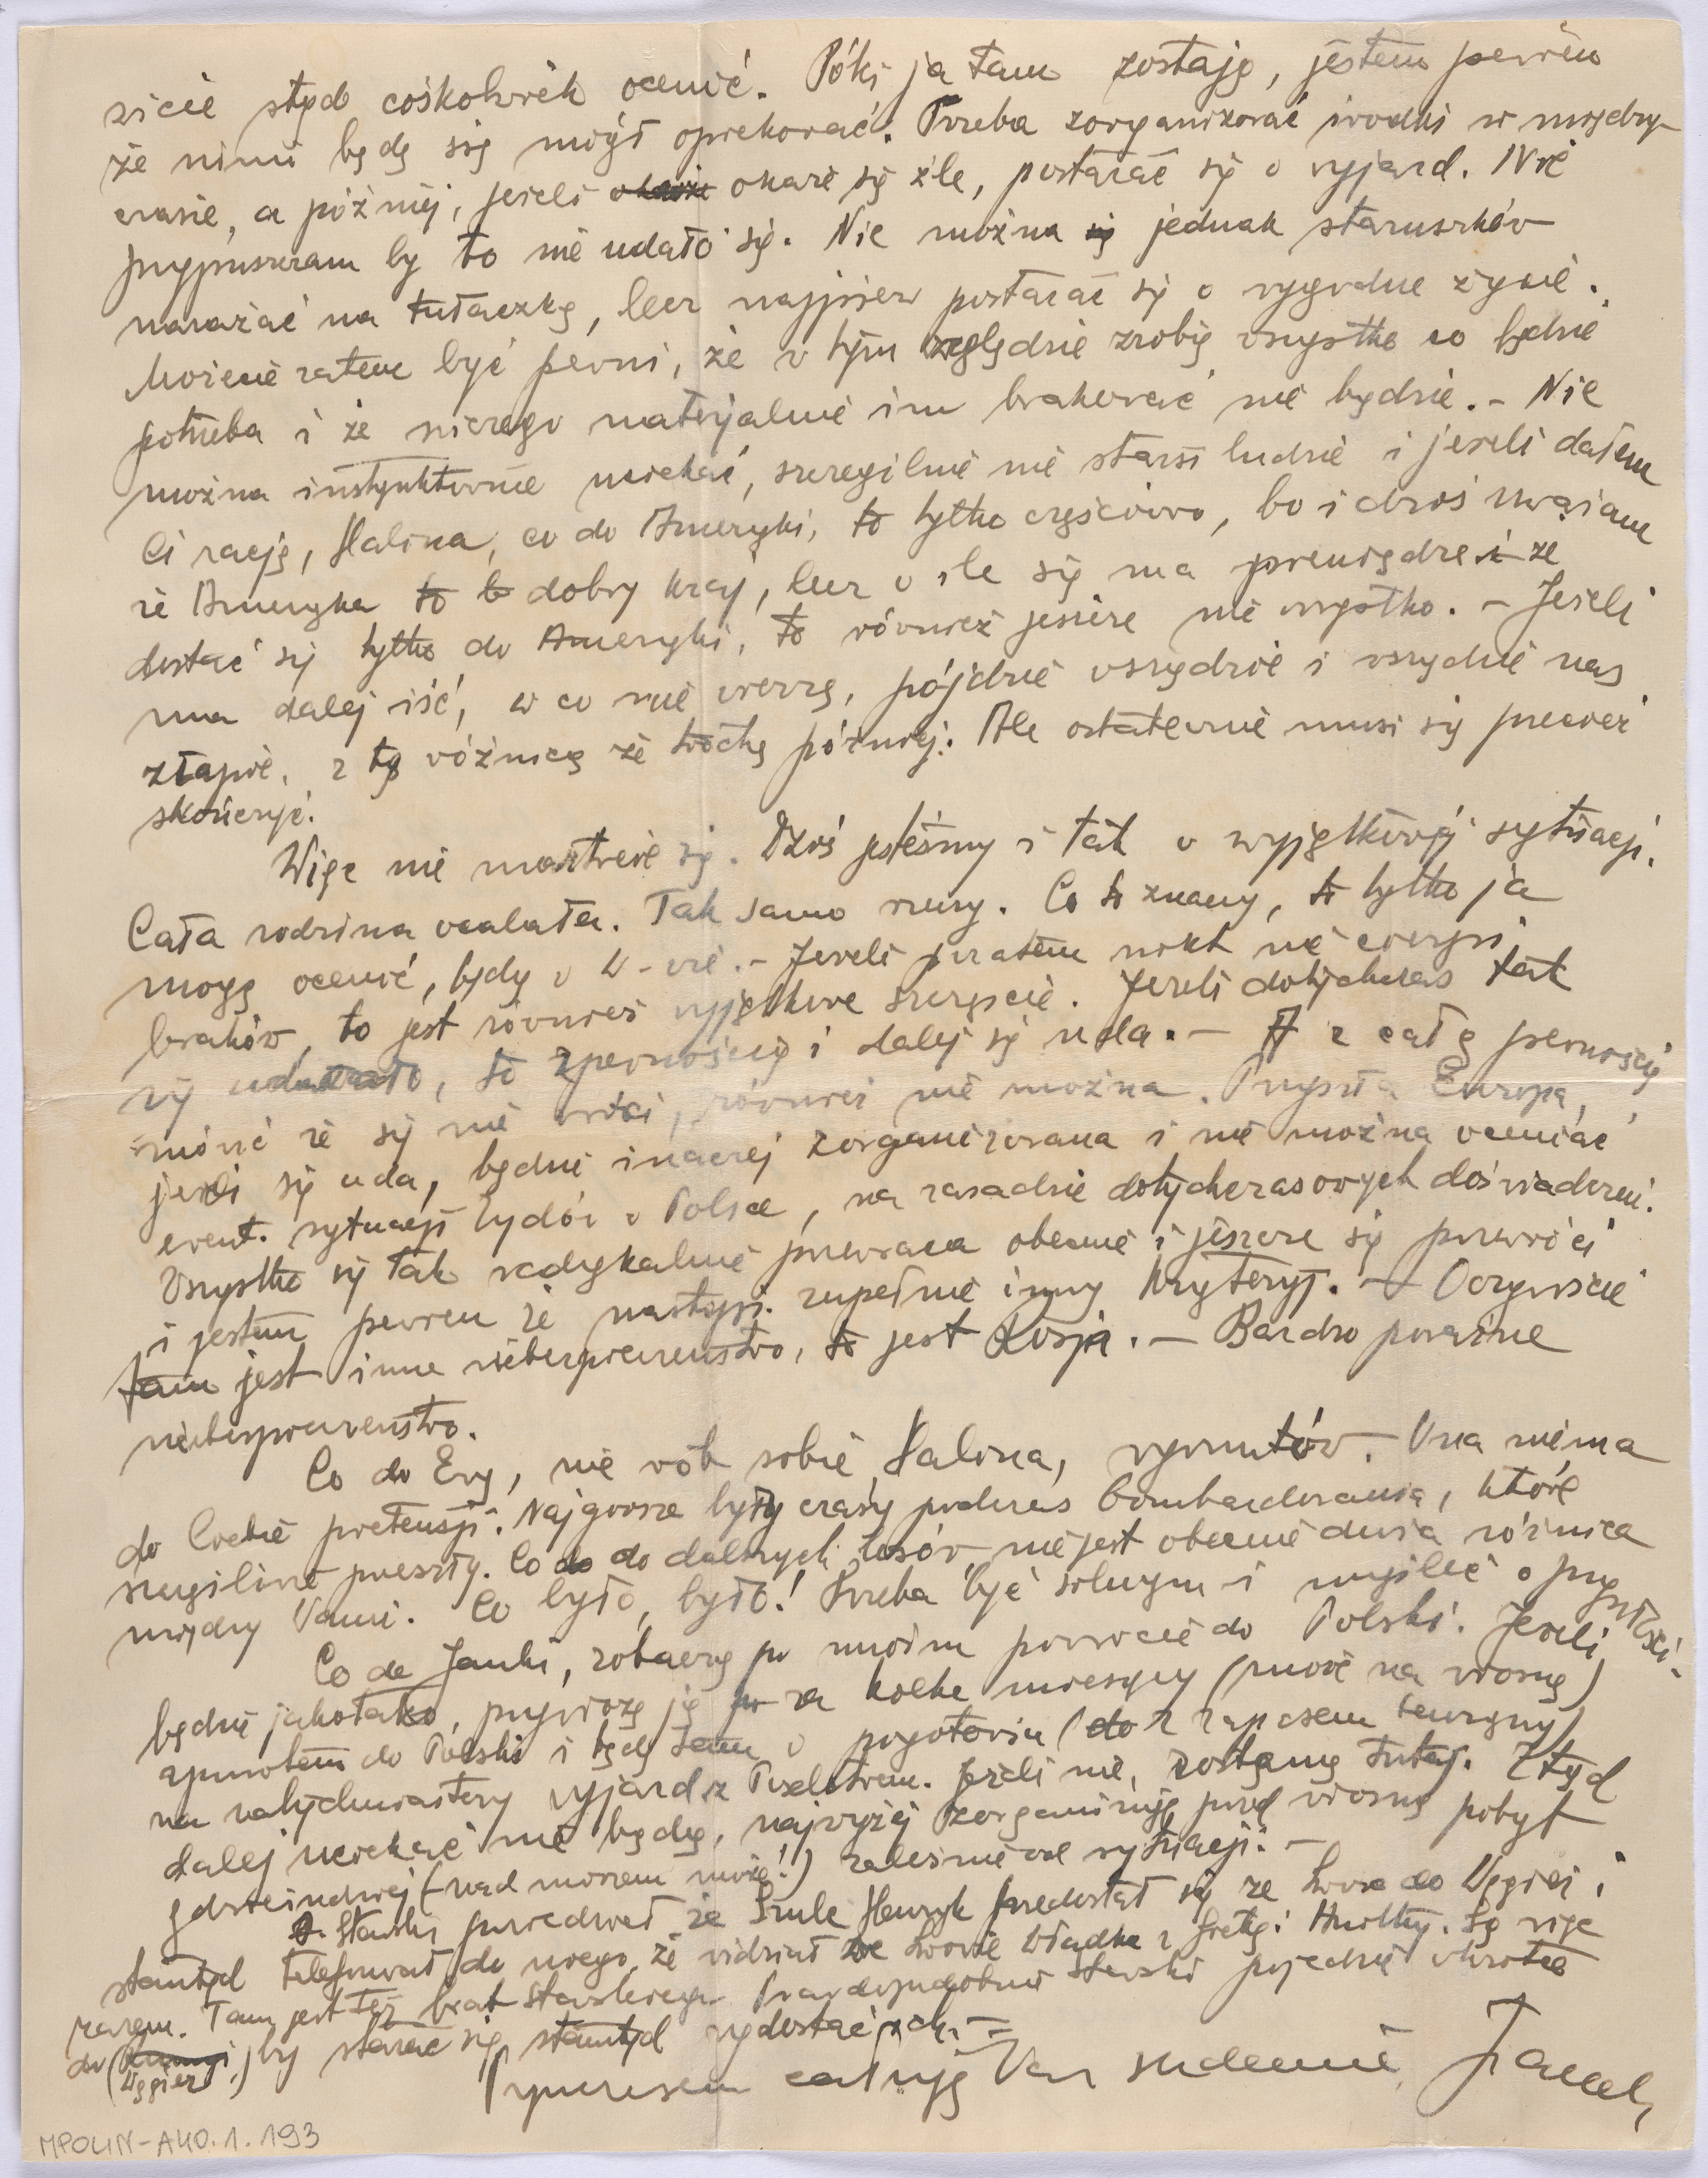 życie stąd cośkolwiek ocenić. Póki ja tam zostaję, jestem pewien
że nimi będę się mógł opiekować. Trzeba zorganizować środki w między-
czasie, a później, jeżeli okaże się źle, postarać się o wyjazd. Nie
przypuszczam by to nie udało się. Nie można jednak staruszków
narażać na tułaczkę, lecz najpierw postarać się o wygodne życie.
Możecie zatem być pewni, że w tym względzie zrobię wszystko co będzie
potrzeba i że niczego materjalnie im brakować nie będzie. – Nie
można instynktownie uciekać, szczególnie nie starsi ludzie i jeżeli dałem
Ci rację, Halina, co do Ameryki, to tylko częściowo, bo i dziś uważam
że Ameryka to dobry kraj, lecz o ile się ma pieniądze i że
dostać się tylko do Ameryki, to również jeszcze nie wszystko. – Jeżeli
ma dalej iść, w co nie wierzę, pójdzie wszędzie i wszędzie nas
złapie, z tą różnicą że trochę później. Ale ostatecznie musi się przecież
skończyć.
Więc nie martwcie się. Dziś jesteśmy i tak w wyjątkowej sytuacji.
Cała rodzina ocalała. Tak samo rzeczy. Co to znaczy, to tylko ja
mogę ocenić, będąc w W-wie. – Jeżeli pozatem nikt nie cierpi
braków, to jest również wyjątkowe szczęście. Jeżeli dotychczas tak
się udawało, to z pewnością i dalej się uda. – A z całą pewnością
mówić że się nie wróci, również nie można. Przyszła Europa,
jeżeli się uda, będzie inaczej zorganizowana i nie można oceniać
ewent. sytuacji Żydów w Polsce, na zasadzie dotychczasowych doświadczeń.
Wszystko się tak radykalnie przewraca obecnie i jeszcze się przewróci
i jestem pewien że nastąpi zupełnie inny kryterjj. – Oczywiście
tam jest inne niebezpieczeństwo, to jest Rosja. – Bardzo poważne
niebezpieczeństwo.
Co do Ewy, nie rób sobie, Halina, wyrzutów. Ona niema
do Ciebie pretensji. Najgorsze były czasy podczas bombardowania, które
szczęśliwie przeszły. Co do dalszych losów, nie jest obecnie duża różnica
między Wami. Co było, było! Trzeba być silnym i myśleć o przyszłości.
Co do Janki, zobaczę po moim powrocie do Polski. Jeżeli
będzie jakotako, przywiozę ją za kilka miesięcy (może na wiosnę)
zpowrotem do Polski i będę tam w pogotowiu (z zapasem benzyny)
na natychmiastowy wyjazd z Poselstwem. Jeżeli nie, zostanę tutaj. Ztąd
dalej uciekać nie będę, najwyżej zorganizuję przed wiosną pobyt
gdzieindziej (nad morzem może!) zależnie od sytuacji. –
Stawski powiedział, że Szulc Henryk przedostał się ze Lwowa do Węgier i
stamtąd telefonował do niego, że widział we Lwowie Władka z Gretą i . Są więc
razem. Tam jest też brat Stawskiego. Prawdopodobnie Stawski pojedzie wkrótce
do (Węgier) by starać się stamtąd wydostać ich. –
Tymczasem całuję Was serdecznie, Janek
MPOLIN-A40.1.193